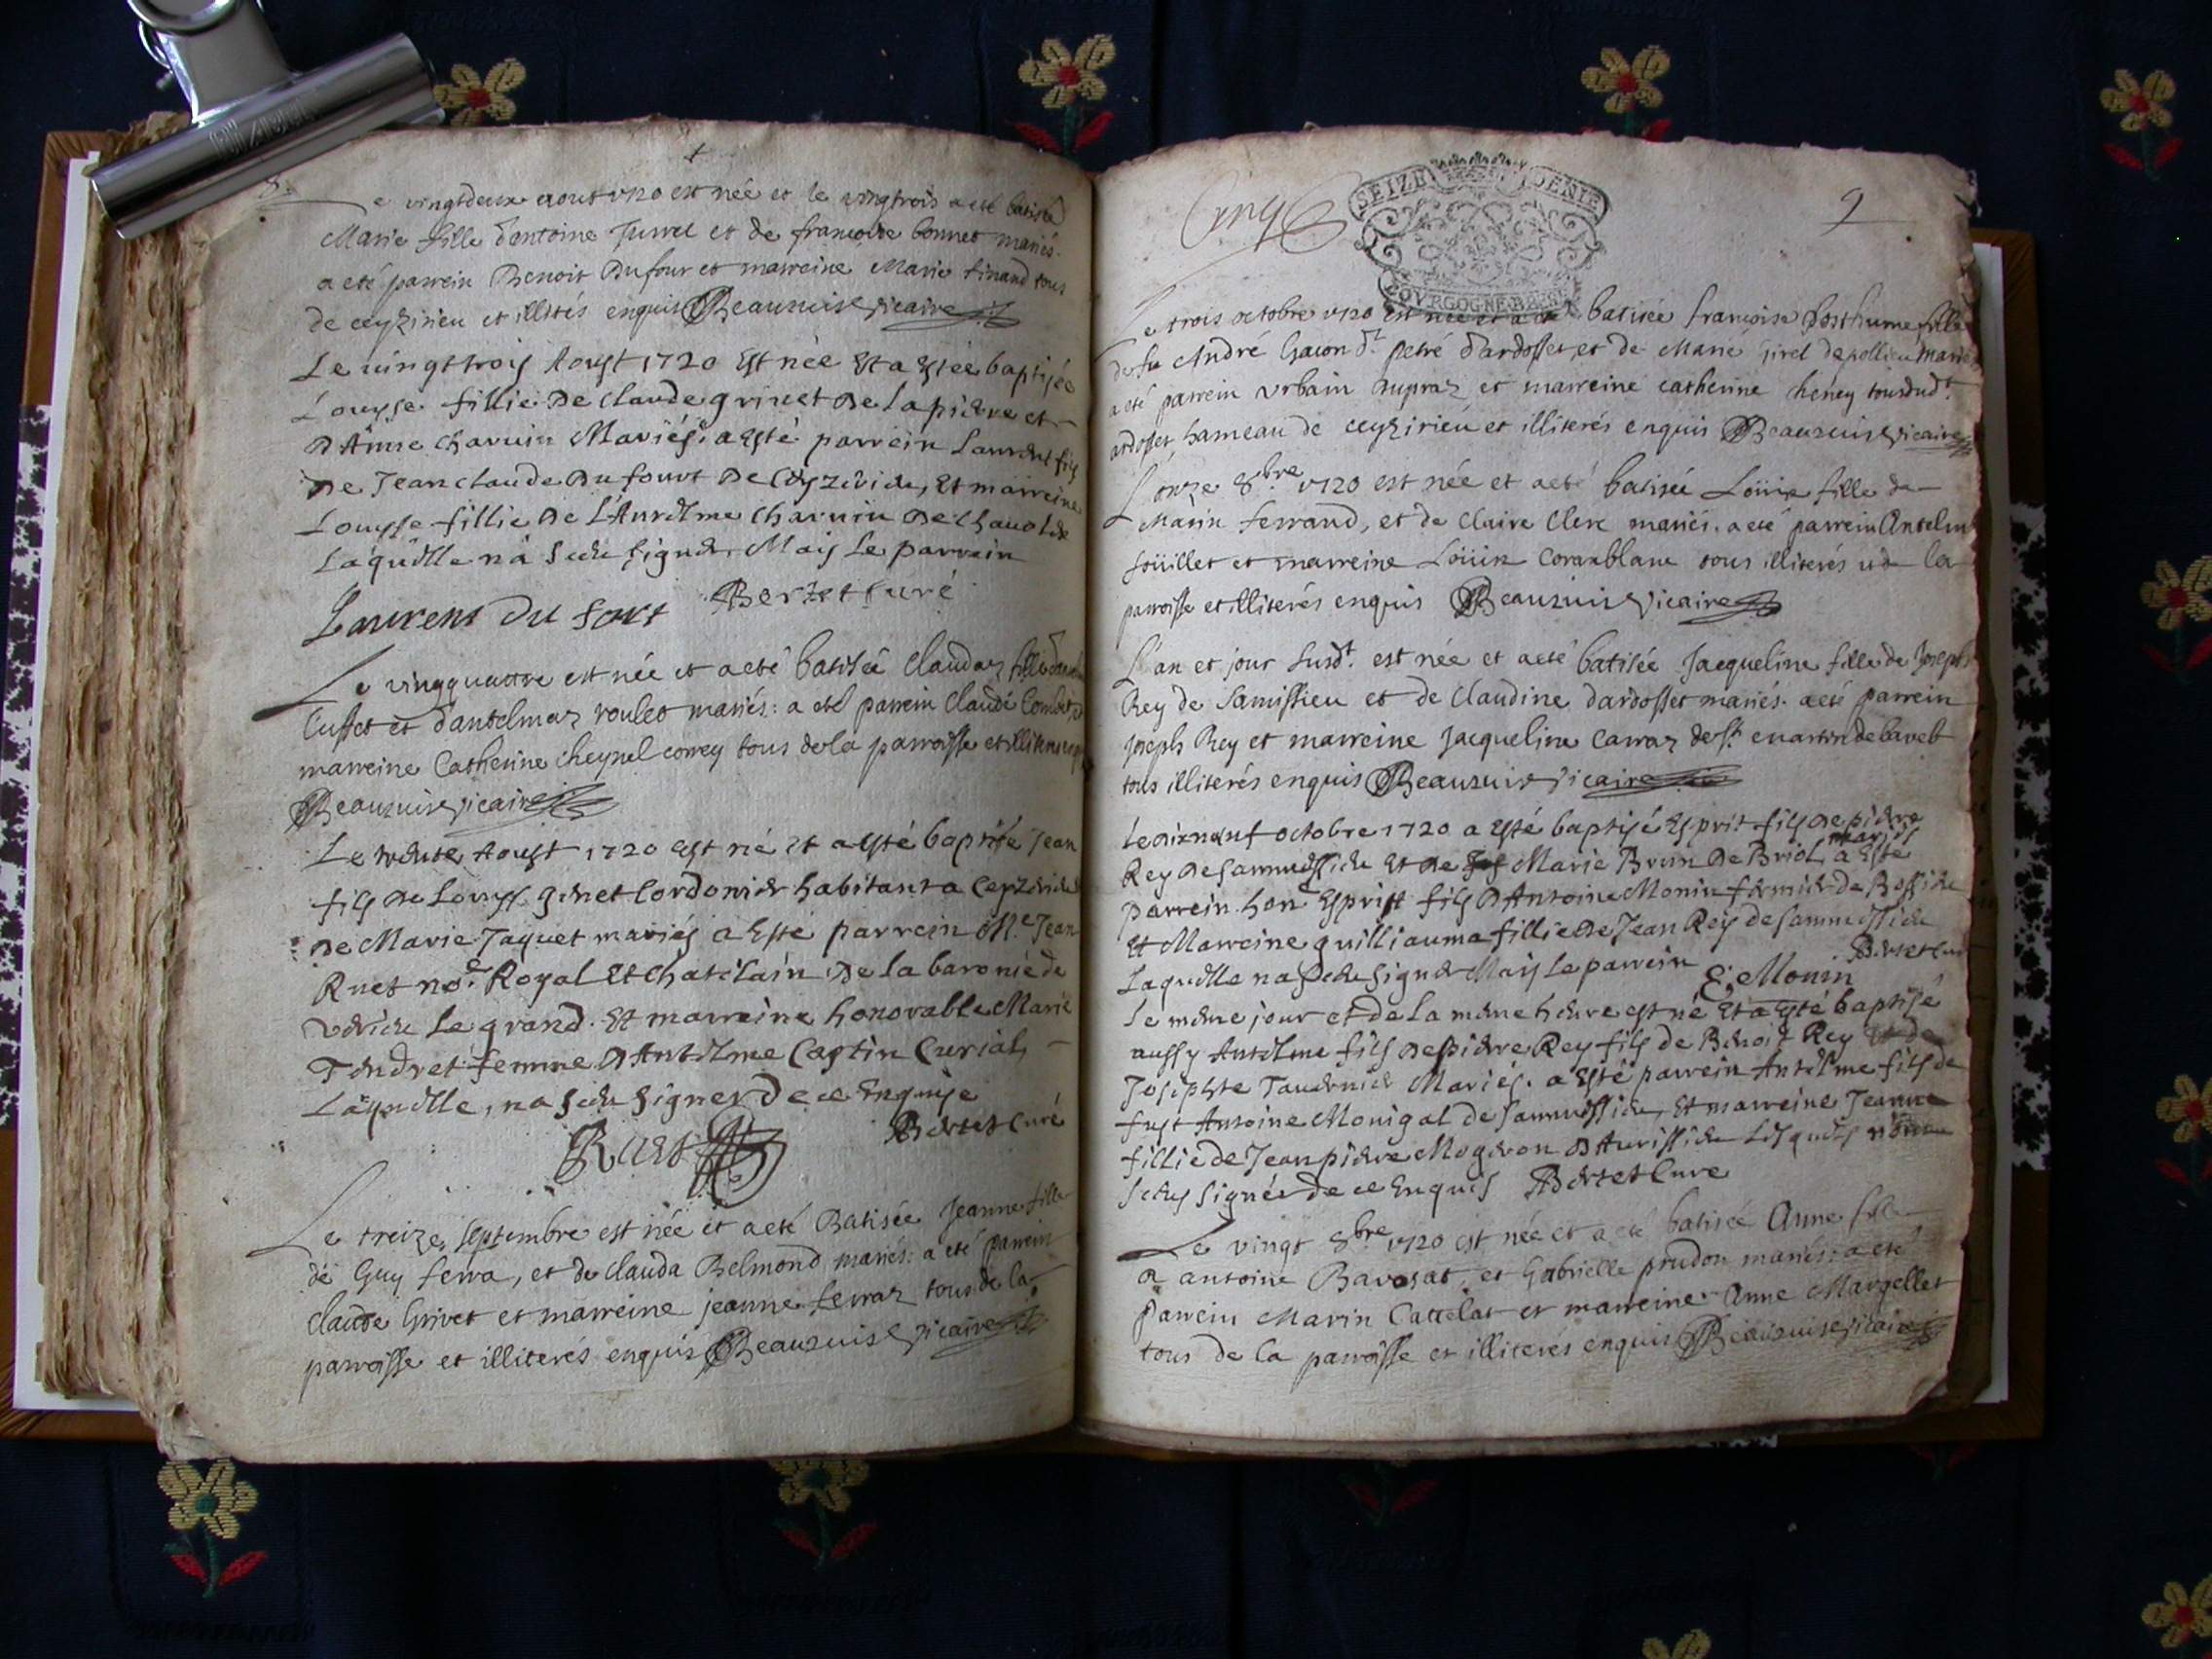 Le vingtdeux aoust 1720 est née et le vingtrois a eté batisée
Marie fille d'antoine Juvret et de francoise bonnet mariés.
a eté parrein Benoit Dufour et marreine Marie tinand tous
de ceyzirieu et illités enquis Beauzuis vicaire
Le vingt troy Aoust 1720 Est née Et a Estée baptisée
Louyse fillie De Claude grinet De la pierre et
D'Anne Charuin Mariés. a Esté parrein Laurent fils
De Jean claude Dufourt De Ceyzerieu, Et marreine
Louyse fillie De L'Anthelme Charuin De Chauolde
Laquelle n'a sceu signer, Mais Le parrain
Laurens du fort Berzet Curé
Le vingquattre est née et a eté batisée Claudaz fille
Cusset et d'antelmaz roulet mariés: a eté parrein Claude
marreine Catherine cheynel correy tous de la parroisse et
Beauzuis vicaire
Le trente Aoust 1720 Est né Et a Esté baptisé Jean
fils De Louys ginet Cordonier habitant a Ceyzerieu
De Marie Jaquet mariés a Esté parrein Me. Jean
Ruet nore. Royal Et Chatelain De la baronie de
verieu Le grand. Et marreine honorable Marie
Tendret femme D'Antelme Captin Curial,
Laquelle, na sceu signer De ce Enquise
Ruet Berzet Curé
Le treize septembre est née et a eté Batisée Jeanne fille
de Guy ferra, et de clauda Belmond mariés: a eté parrein
Claude Grivet et marreine jeanne ferraz tous de la
parroisse et illiterés enquis Beauzuis vicaire
SEIZE DENIE
BOVRGOGNE BRESSE
9
Le trois octobre 1720 est née et a eté batisée francoise posthume fille
de fu André Gacon dt. petré d'ardosset et de Marie Girel de pollieu mariés
a eté parrein Urbain Dupraz et marreine catherine cheney tous dudt.
ardosset hameau de ceyzirieu et illiterés enquis Beauzuis vicaire
L'onze 8bre 1720 est née et a eté batisée Loüise fille de
Marin ferrand, et de Claire Clerc mariés. a eté parrein Antelm
soüillet et marreine Loüise Coranblanc tous illiterés de la
parroisse et illiterés enquis Beauzuis vicaire
L'an et jour susdt. est née et a eté batisée Jacqueline fille de Joseph
Rey de Samissieu et de Claudine dardosset mariés. a eté parrein
Joseph Rey et marreine Jacqueline Carraz de St. martin de bavel
tous illiterés enquis Beauzuis vicaire
Le dixneuf octobre 1720 a Esté baptisé Esprit fils De pierre
mariés
Rey De Sammessieu Et De Marie Brun De Briol, a Esté
parrein hon Esprit fils D'Antoine Monin fermier de Rossieu
Et Marreine guilliauma fillie De Jean Rey de Sammessieu
Laquelle na sceu signer Mais Le parrein E. Monin Berzet Cur
Le même jour et de la même heure est né Et a Esté baptisé
aussy Antelme fils De pierre Rey fils de Benoit Rey et de
Josephte Tavernier Mariés. a Esté parrein Antelme fils de
fust Antoine Monigal de Sammessieu, Et marreine Jeanne
fillie de Jean pierre Mogeron D'Avrissieu Lesquels n'ont
sceus signés de ce Enquis Berzet Cure
Le vingt 8bre 1720 est née et a eté batisée Anne fille
a antoine Bavozat, et Gabrielle prudon mariés: a eté
parrein Marin Cattelat et marreine Anne Margellet
tous de la parroisse et illiterés enquis Beauzuis vicaire